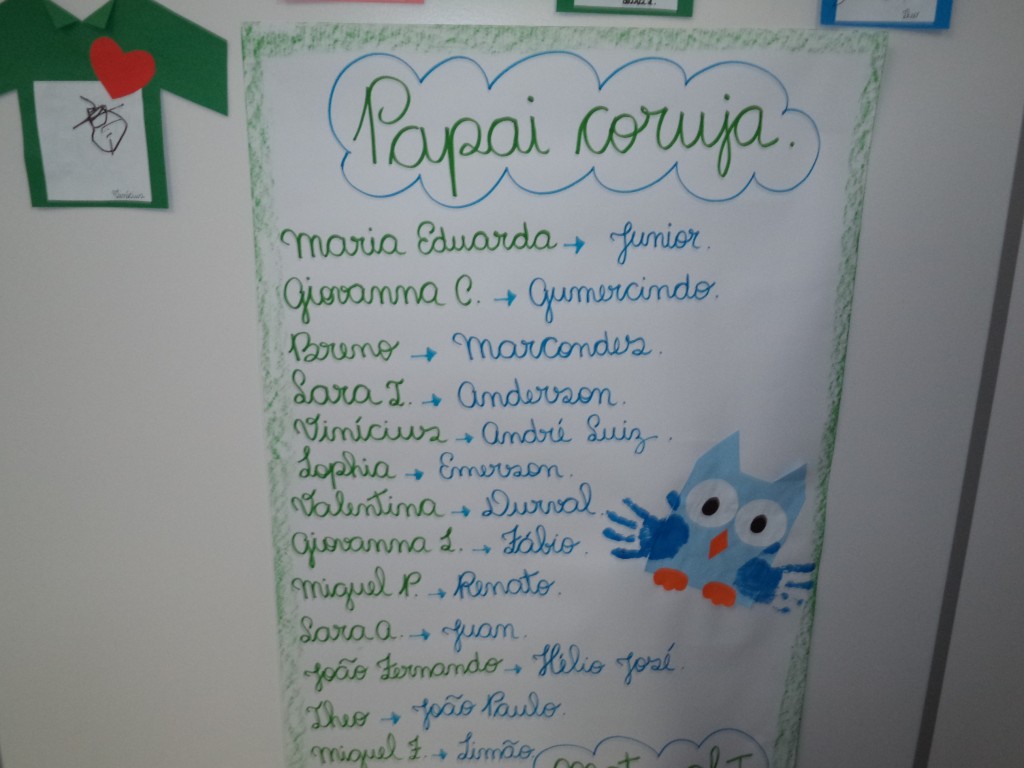 Papai coruja.
Maria Eduarda → Junior.
Giovanna C. → Gumercindo.
Breno → Marcondes.
Sara I. → Anderson.
Vinícius → André Luiz.
Sophia → Emerson.
Valentina → Durval.
Giovanna L. → Fábio.
Miguel P. → Renato.
Sara A. → Juan.
João Fernando → Hélio José.
Theo → João Paulo.
Miguel F. → Simão